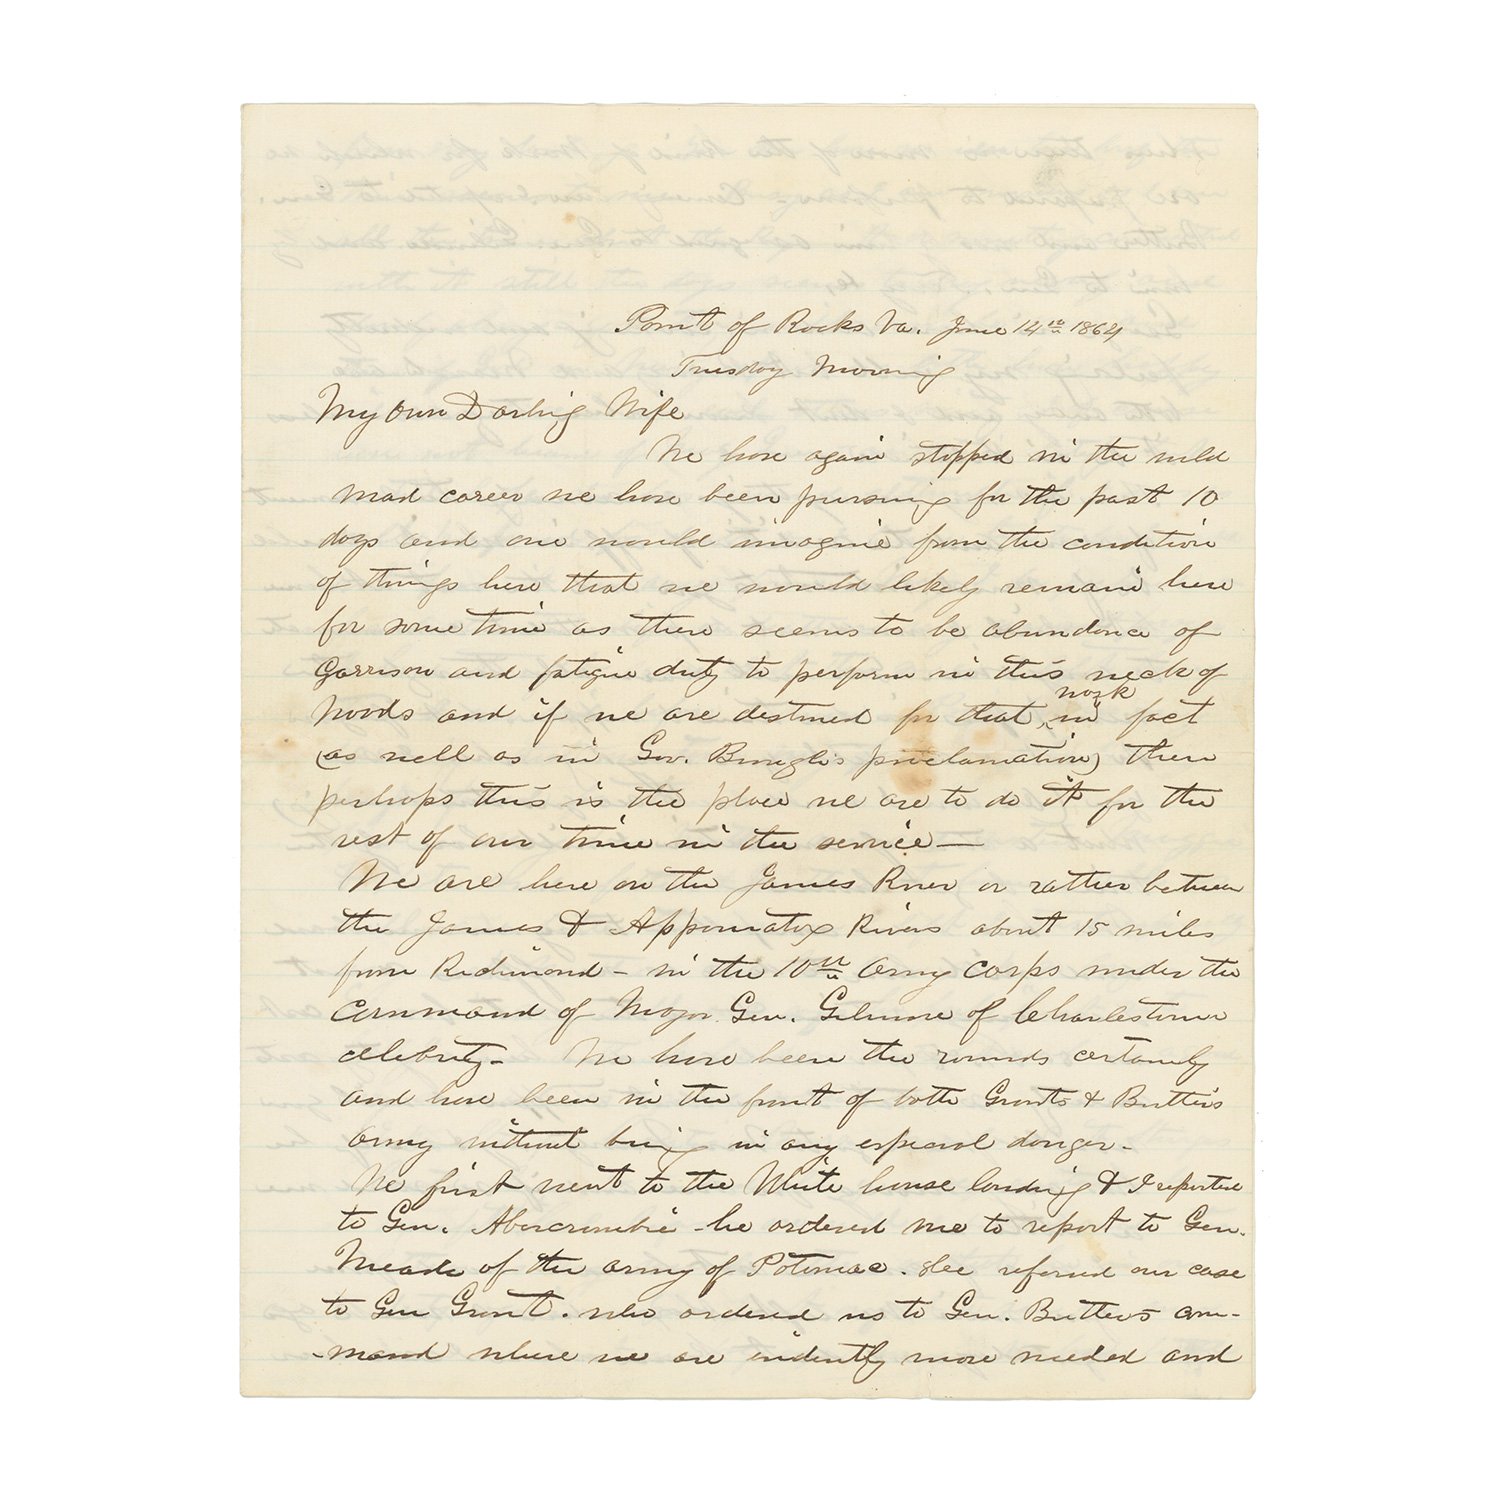 Point of Rocks Va. June 14th 1864
Tuesday Morning
My Own Darling Wife
We have again stopped in the wild
mad career we have been pursuing for the past 10
days and one would imagine from the condition
of things here that we would likely remain here
for some time as there seems to be abundance of
Garrison and fatigue duty to perform in this neck of
Woods and if we are destined for that work in fact
(as well as in Gov. Brough's proclamation) then
perhaps this is the place we are to do it for the
rest of our time in the service—
We are here on the James River or rather between
the James & Appomatox Rivers about 15 miles
from Richmond - in the 10th Army Corps under the
Command of Major Gen. Gilmore of Charlestown
celebrity - We have been the rounds certainly
and have been in the front of both Grants & Butlers
Army without being in any especial danger -
We first went to the White house landing & I reported
to Gen. Abercrombie - he ordered me to report to Gen.
Meade of the army of Potomac. He referred our case
to Gen Grant. who ordered us to Gen. Butlers com-
-mand where we are evidently more needed and